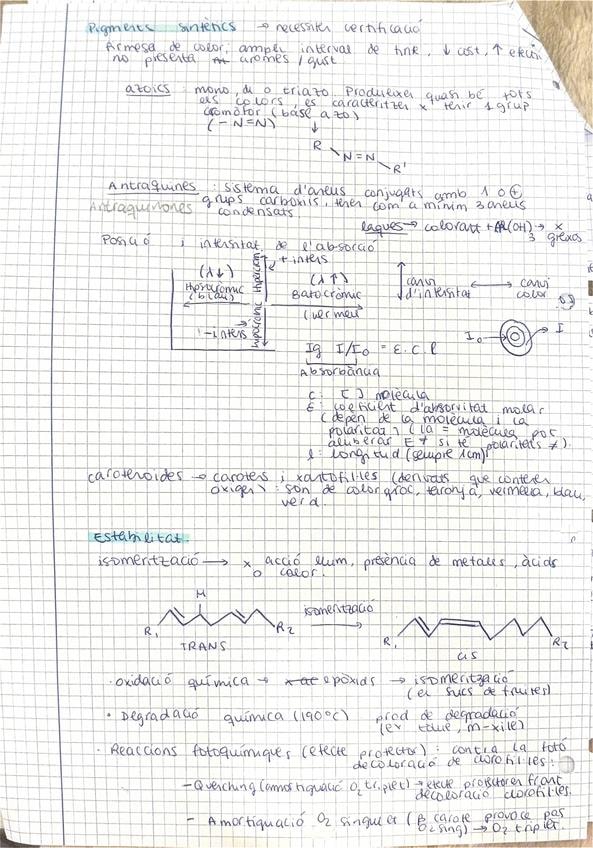 Pigments sintètics → necessiten certificació
Armesa de color, ampli interval de tink, ↓ cost, ↑ efici
no presenta aromes / gust
azoics : mono, di o triazo. Produeixen quasi bé tots
els colors, es caracteritzen x tenir 1 grup
cromotor (base azo)
(-N=N)
↓
R
N=N
R'
Antraquines : sistema d'aneus conjugats amb 1 o ⊕
Antraquinones grups carboxils, tenen com a mínim 3 aneus
condensats
laques → colorant + Al(OH)3 → x greixos
Posició i intensitat de l'absorció
+ intens
(λ↓) Hipercromic (λ↑) canvi d'intensitat canvi color
Hipsocromic Batocromic
(blau) (vermell
- intens Hipocromic
lg I/I0 = ε.c.l I0 → I
Absorbància
c: [ ] molècula
ε: coeficient d'absorvitat molar
(depèn de la molècula i la
polaritat) (la = molècula pot
l: longitud (sempre 1cm)
carotenoides → carotens i xantofil·les (derivats que contenen
oxigen) : són de color groc, taronja, vermella, blau,
verd.
Estabilitat.
isomerització → x acció llum, presència de metalls, àcids
o calor.
H
isomerització
R1 R2 R1 R2
TRANS CIS
· oxidació química → epòxids → isomerització
(ex sucs de fruites)
· Degradació química (190ºC) prod de degradació
(ex tolue, m-xile)
· Reaccions fotoquímiques (efecte protector) : contra la foto
decoloració de clorofil·les :
- Quenching (amortiguació O2 triplet) → efecte protector en front
decoloració clorofil·les.
- Amortiguació O2 singulet (β carote provoca pas
O2 sing) → O2 triplet.